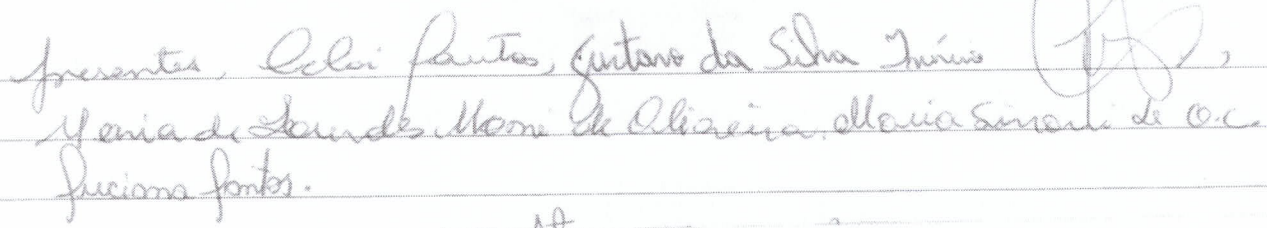 presentes, Santos, Gustavo da Silva
Maria de Lourdes de Oliveira, Maria Simoni de O.C.
Luciana Santos.